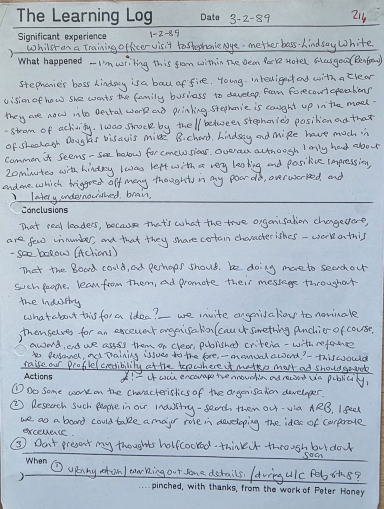 214
The Learning Log Date 3-2-89
Significant experience 1-2-89
Whilst on a Training Officer visit to Stephanie Nye - met her boss - Lindsay White
What happened - I'm writing this from within the Dean Park Hotel Glasgow (Renfrew)
Stephanie's boss Lindsay is a ball of fire. Young - intelligent and with a clear
vision of how she wants the family business to develop. From forecourt operations
they are now into rental work and printing. Stephanie is caught up in the mael-
-strom of activity. I was struck by the // between Stephanie's position and that
of Douglas vis a vis Mike Richard. Lindsay and Mike have much in
common it seems - see below for conclusions. Overall although I only had about
20 minutes with Lindsay I was left with a very lasting and positive impression,
and one which triggered off many thoughts in my poor old, overworked and
lately undernourished, brain.
Conclusions
That real leaders, because that's what the true organisation changers are,
are few in number, and that they share certain characteristics - work on this
- see below (Actions)
That the Board could, and perhaps should, be doing more to search out
such people, learn from them, and promote their message throughout
the Industry
What about this for a idea? - we invite organisations to nominate
themselves for an excellent organisation (call it something punchier of course,
award, and we assess them on clear, published criteria - with reference
to Personnel, and Training issues to the fore - an annual award? - this would
raise our profile/credibility at the top where it matters most and should go out
& it will encourage the innovation and reward via publicity,
Actions
① Do some work on the characteristics of the organisation developer.
② Research such people in our industry - search them out - via ARB, I feel
we as a board could take a major role in developing the idea of corporate
excellence.
③ Don't present my thoughts half cocked - think it through but do it
soon
When
① upon my return / working out some details. / during W/C Feb 6th 89
....pinched, with thanks, from the work of Peter Honey